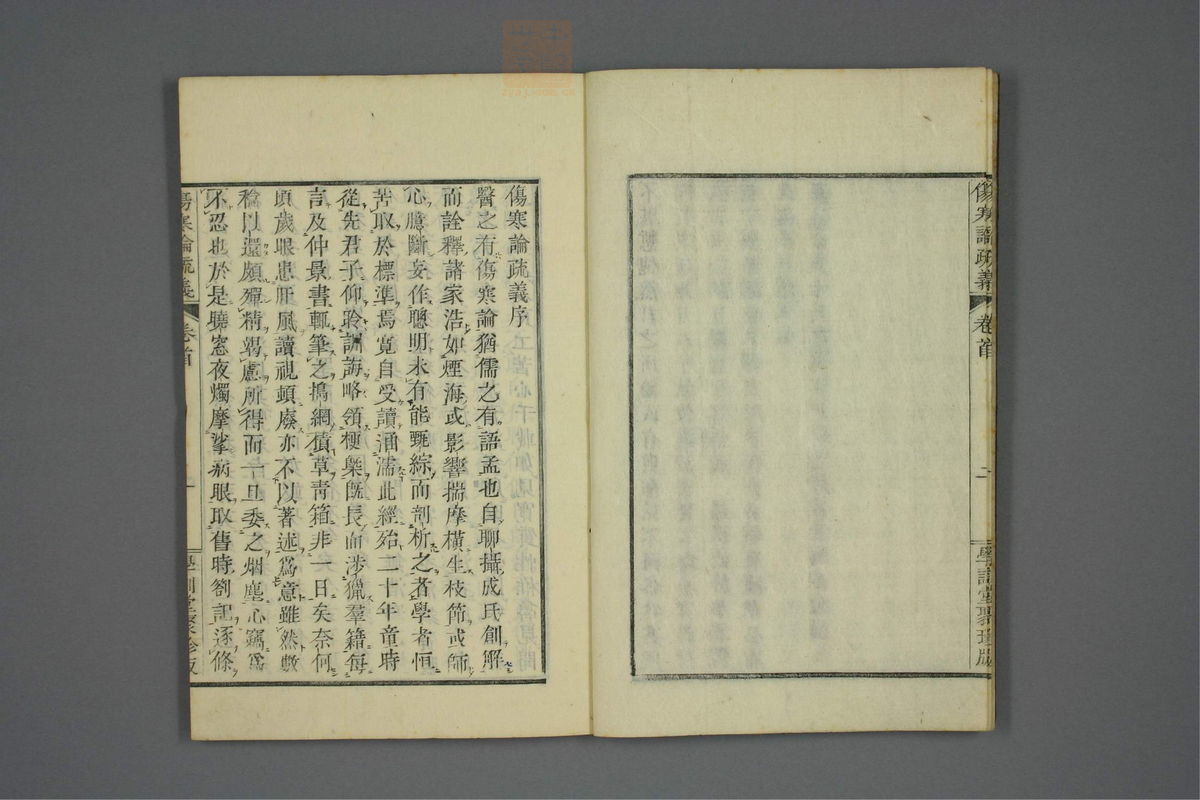 傷寒論疏義
卷首
二
學訓堂聚珍版
傷寒論疏義序
醫之有傷寒論猶儒之有語孟也自聊攝成氏創解
而詮釋諸家浩如煙海或影響揣摩橫生枝節或師
心臆斷妄作聰明未有能甄綜而剖析之者學者恒
苦取於標準焉寬自受讀涵濡此經殆二十年童時
從先君子仰聆訓誨略領梗槩旣長而涉獵羣籍每
言及仲景書輒筆之搗網積草靑箱非一日矣奈何
頃歲眼患肝風讀視頓廢亦不以著述爲意雖然數
稔以還頗殫精竭慮所得而一旦委之烟塵心竊爲
不忍也於是曉窓夜燭摩挲病眼取舊時劄記逐條
傷寒論疏義
卷首
一
學訓堂聚珍版